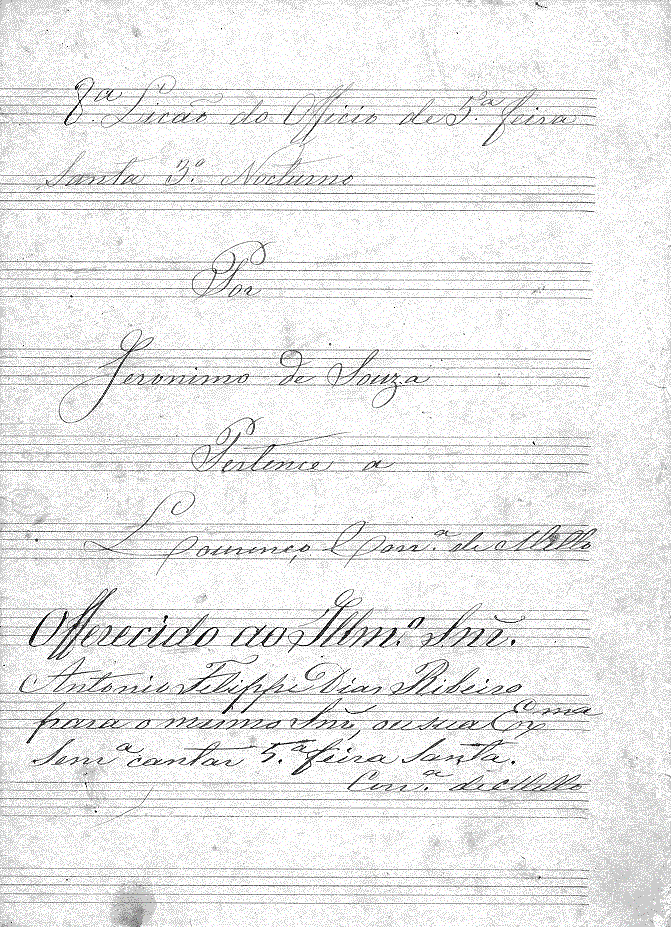 8.ª Licão do Officio de 5.ª feira
Santa 3.º Nocturno
Por
Jeronimo de Souza
Pertence a
Lourenço Corr.ª de Mello
Offerecido ao Illm.º Snr̃.
Antonio Filippe Dias Ribeiro
para o mesmo Snr̃, ou sua Exma
Senr.ª cantar 5.ª feira Santa.
Corr.ª de Mello